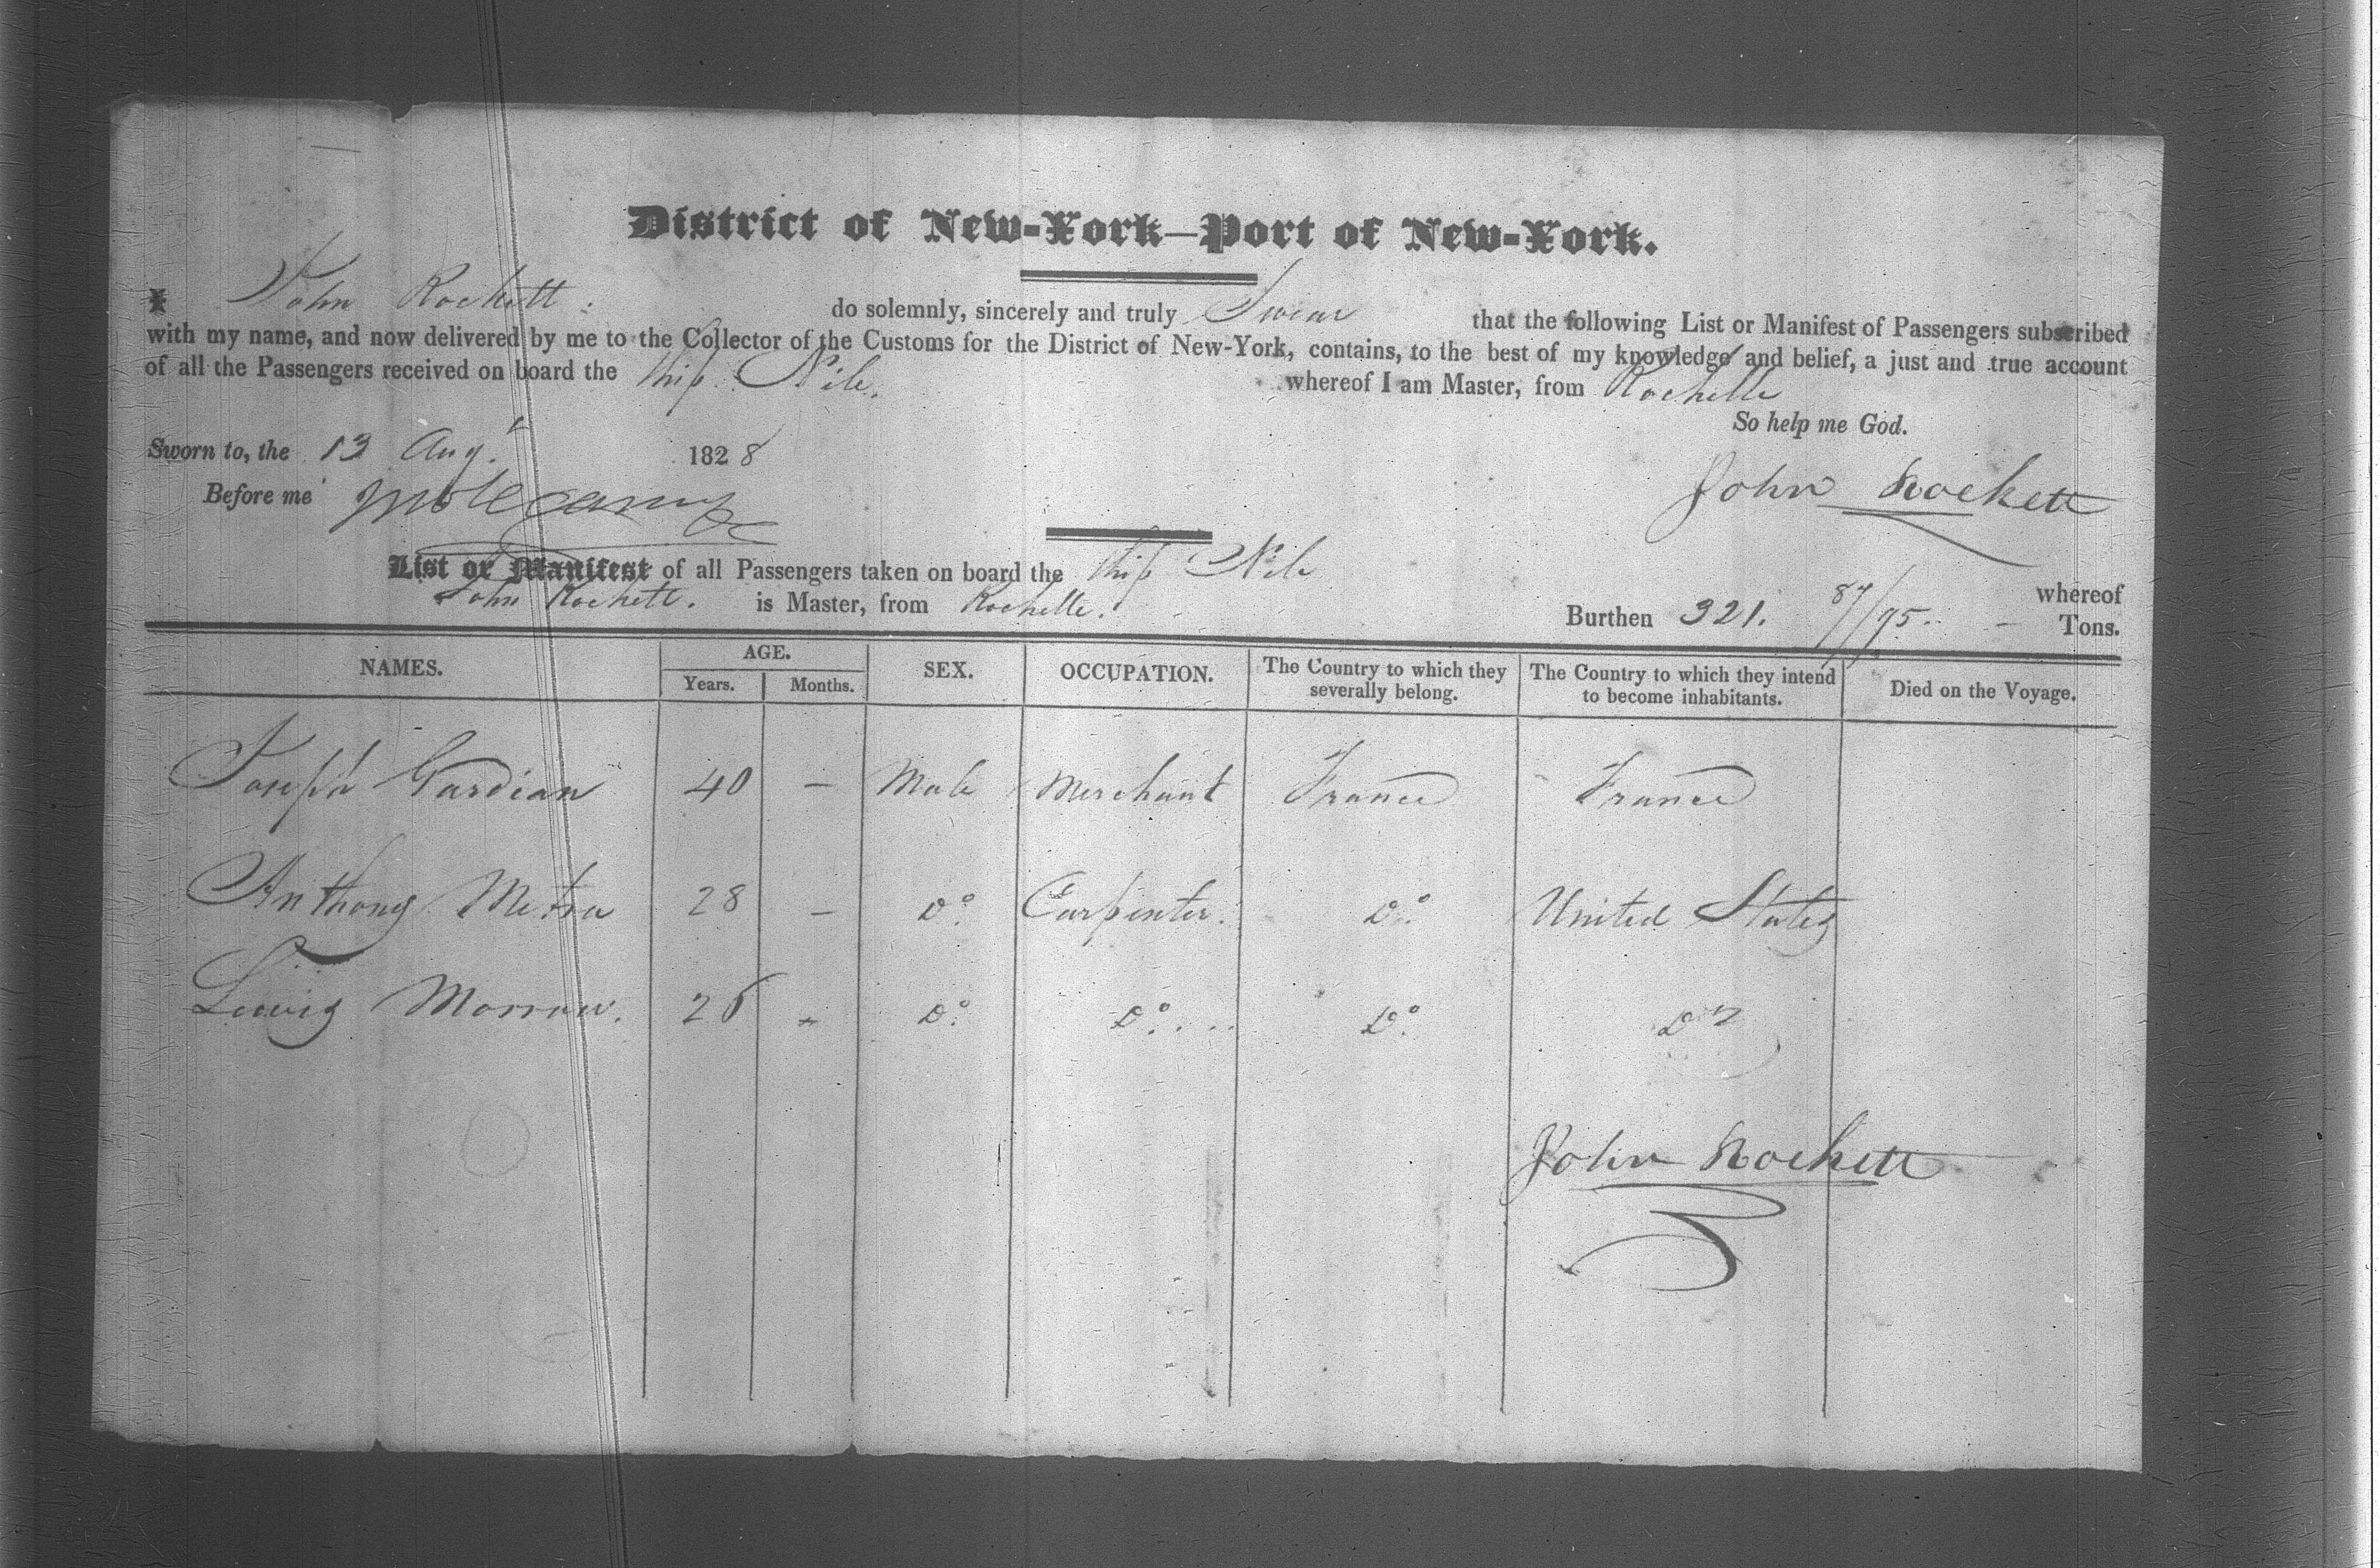 District of New-York—Port of New-York.
I John Rockett do solemnly, sincerely and truly Swear that the following List or Manifest of Passengers subscribed
with my name, and now delivered by me to the Collector of the Customs for the District of New-York, contains, to the best of my knowledge and belief, a just and true account
of all the Passengers received on board the Ship Nile. whereof I am Master, from Rochelle
So help me God.
Sworn to, the 13 Augt 1828
Before me
John Rockett
List or Manifest of all Passengers taken on board the Ship Nile whereof
John Rockett. is Master, from Rochelle. Burthen 321. 87/95 Tons.
NAMES. AGE. Years. Months. SEX. OCCUPATION. The Country to which they severally belong. The Country to which they intend to become inhabitants. Died on the Voyage.
Joseph Gardian 40 – Male Merchant France France
Anthony 28 – Do Carpenter. Do United States
Lewis 26 – Do Do Do Do
John Rockett